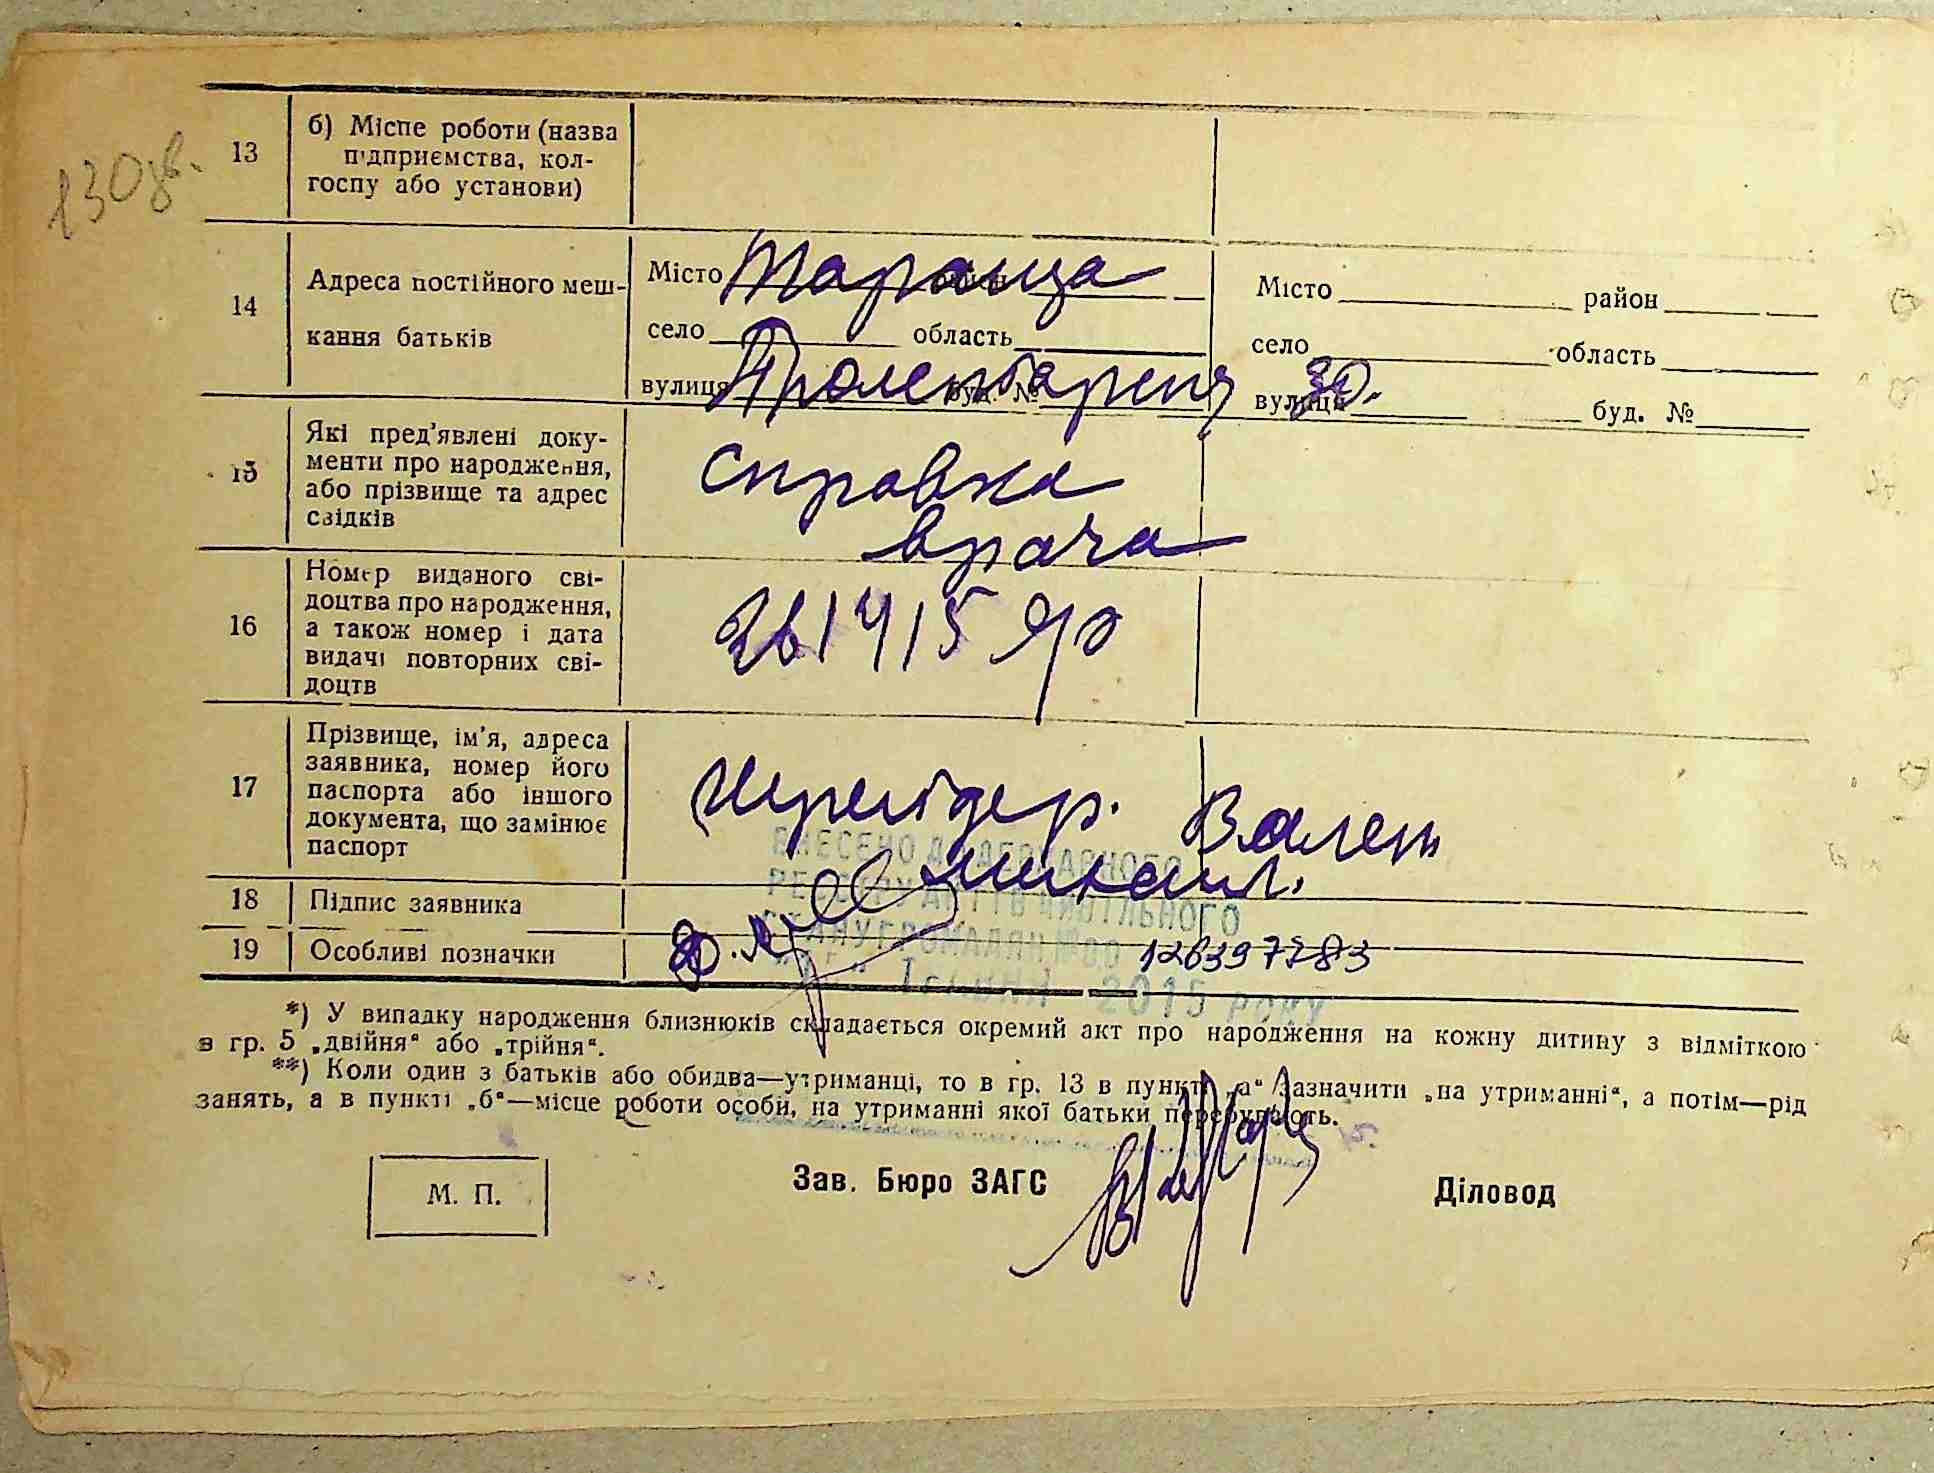 130 зв.
13
б) Місце роботи (назва
підприємства, кол-
госпу або установи)
14
Адреса постійного меш-
кання батьків
Місто Тараща
село область
вулиця Пролетарська буд. №
Місто район
село область
вулиця 30. буд. №
15
Які пред'явлені доку-
менти про народження,
або прізвище та адрес
свідків
справка
врача
16
Номер виданого сві-
доцтва про народження,
а також номер і дата
видачі повторних сві-
доцтв
261415
17
Прізвище, ім'я, адреса
заявника, номер його
паспорта або іншого
документа, що замінює
паспорт
Шрейдер. Вален
михаил.
18
Підпис заявника
19
Особливі позначки
ВНЕСЕНО ДО ДЕРЖАВНОГО
РЕЄСТРУ АКТІВ ЦИВІЛЬНОГО
СТАНУ ГРОМАДЯН №00 126397783
2015 року
*) У випадку народження близнюків складається окремий акт про народження на кожну дитину з відміткою
в гр. 5 „двійня“ або „трійня“.
**) Коли один з батьків або обидва—утриманці, то в гр. 13 в пункті „а“ зазначити „на утриманні“, а потім—рід
занять, а в пункті „б“—місце роботи особи, на утриманні якої батьки перебувають.
М. П.
Зав. Бюро ЗАГС
Діловод